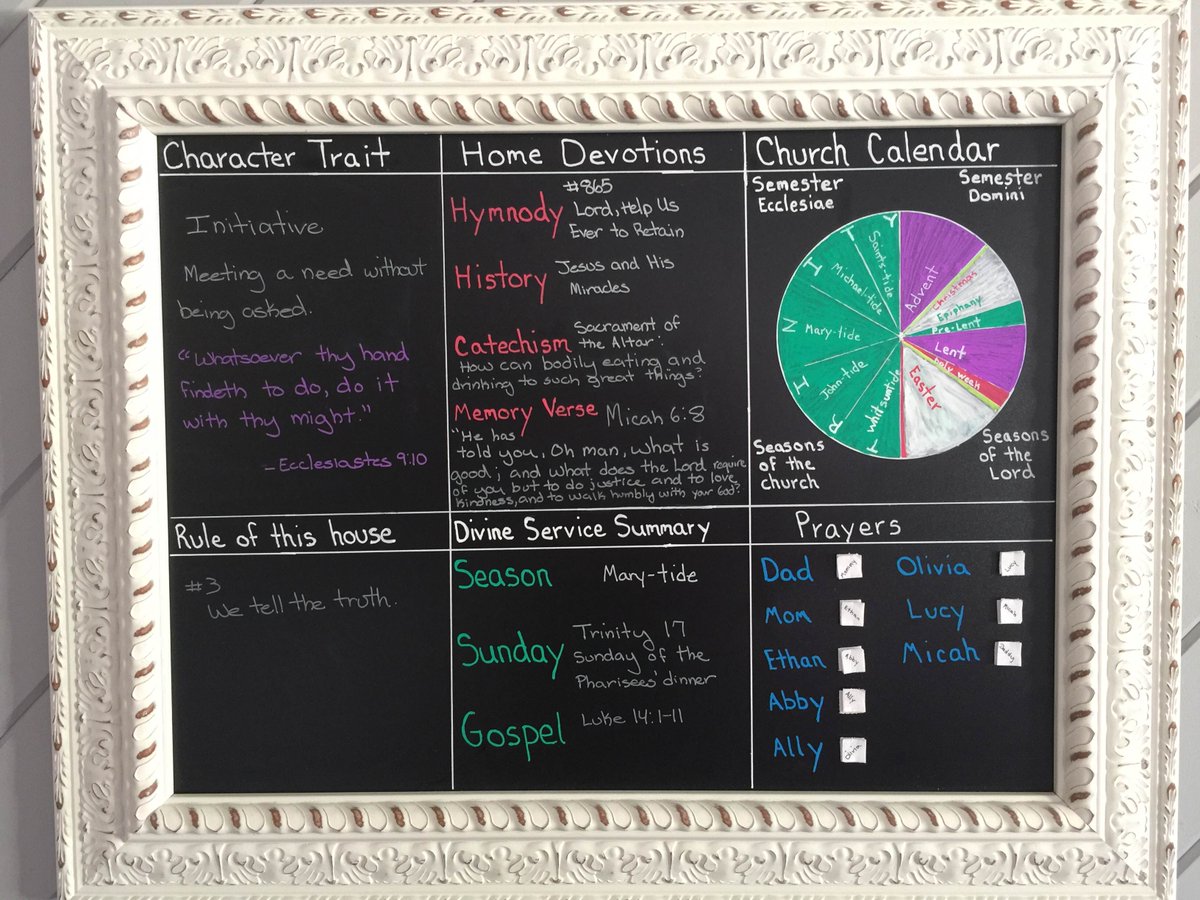 Character Trait
Initiative
Meeting a need without
being asked.
"Whatsoever thy hand
findeth to do, do it
with thy might."
-Ecclesiastes 9:10
Home Devotions
Hymnody
#865
Lord, Help Us
Ever to Retain
History
Jesus and His
Miracles
Catechism
Sacrament of
the Altar:
How can bodily eating and
drinking to such great things?
Memory Verse Micah 6:8
"He has
told you, Oh man, what is
good; and what does the Lord require
of you but to do justice and to love
kindness, and to walk humbly with your God?
Church Calendar
Semester
Ecclesiae
Semester
Domini
Advent
Christmas
Epiphany
Pre-Lent
Lent
Holy Week
Easter
Whitsuntide
John-tide
Mary-tide
Michael-tide
Saints-tide
TRINITY
Seasons
of the
church
Seasons
of the
Lord
Rule of this house
#3
We tell the truth.
Divine Service Summary
Season Mary-tide
Sunday
Trinity 17
Sunday of the
Pharisees' dinner
Gospel Luke 14:1-11
Prayers
Dad Mommy
Mom Ethan
Ethan Abby
Abby Ally
Ally Olivia
Olivia Lucy
Lucy Micah
Micah Daddy